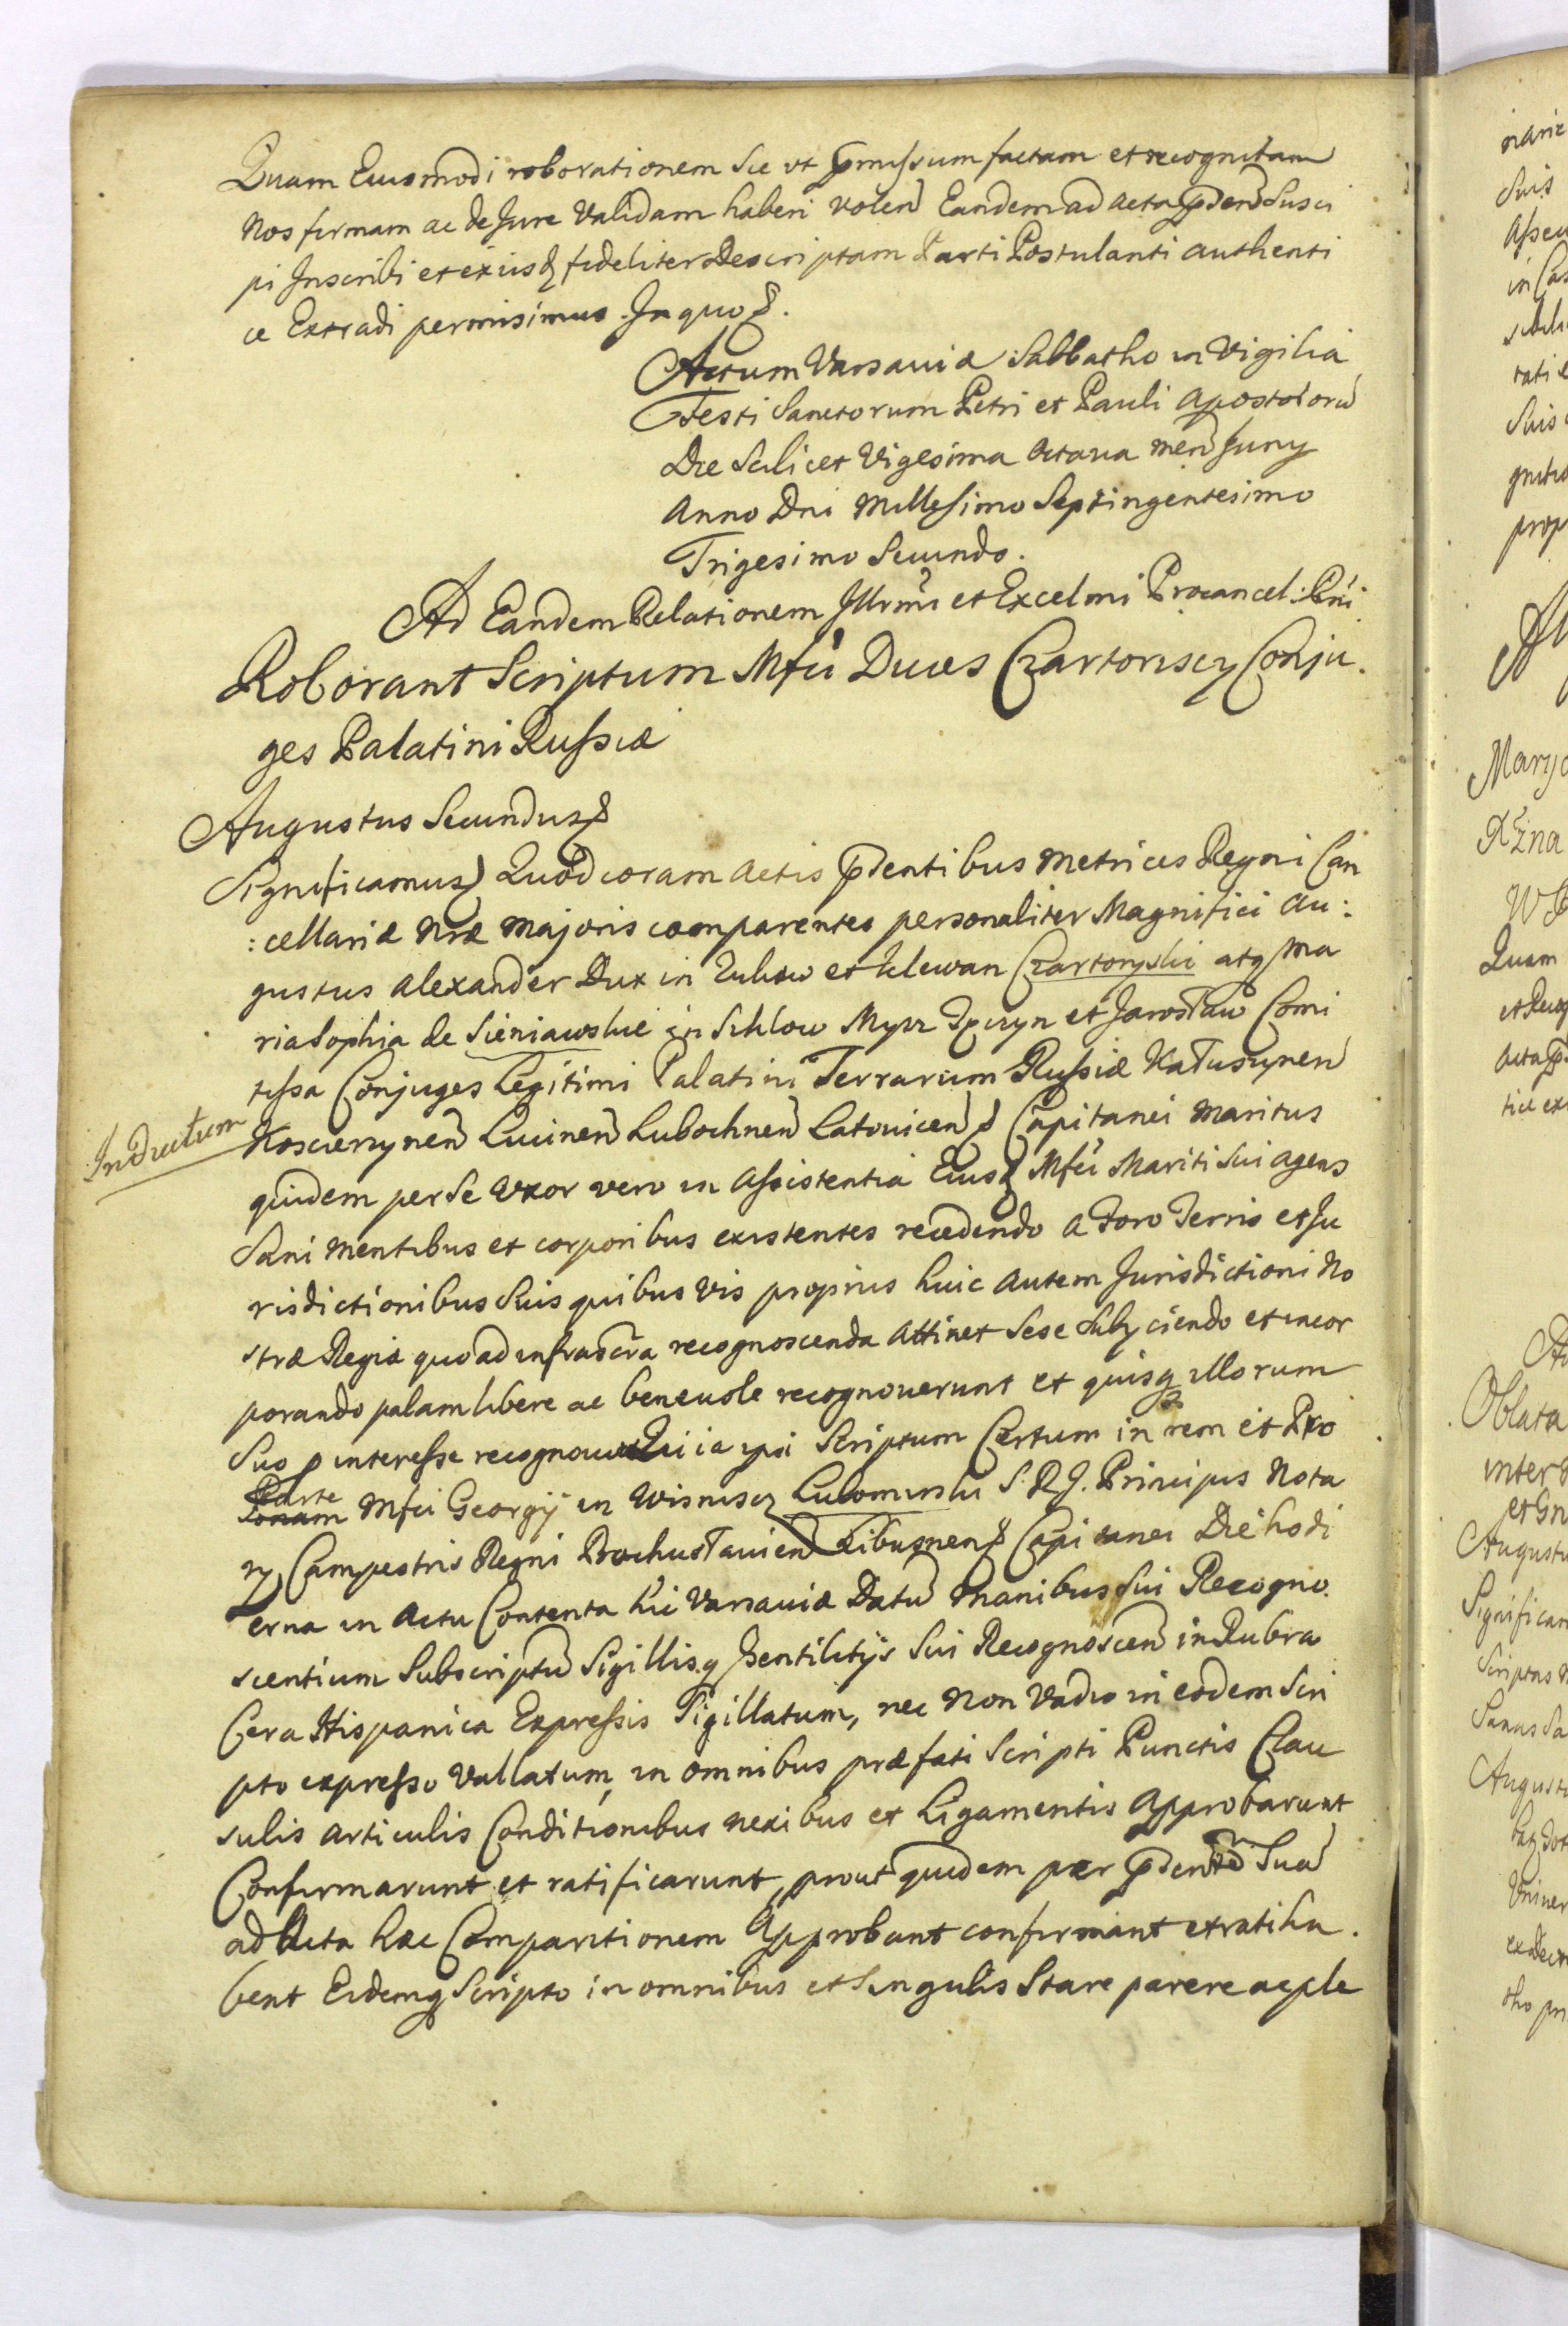 Quam Eiusmodi roborationem sic ut pmissum factam et recognitam
Nos firmam ac de Jure Validam haberi volen Eandem ad acta pden Susci
pi Inscribi et ex iisq fideliter Descriptam Parti Postulanti authenti
ce Extradi permisimus. In quo &.
Actum Varsaviæ Sabbatho in Vigilia
Festi Sanctorum Petri et Pauli Apostolorū
Die Scilicet Vigesima Octava men Juny
Anno Dni Millesimo Septingentesimo
Trigesimo Secundo.
Ad Eandem Relationem Illrmi et Excelmi Procancel: Rni
Roborant Scriptum Mfci Duces Czartoriscy Conju.
ges Palatini Russiæ
Augustus Secundus &
Significamus & Quod coram Actis pdentibus Metrices Regni Can
:cellariæ Nræ Majoris comparentes personaliter Magnifici Au:
gustus Alexander Dux in et Klewan Czartoryski atq Ma
ria Sophia de Sieniawskie in Szklow Mysz et Jarosław Comi
tissa Conjuges Legitimi Palatini Terrarum Russiæ Kałuszynen
Koscierzynen Lucinen Lubochnen Latovicen & Capitanei Maritus
Inductum
quidem per se Uxor vero in Assistentia Eiusq Mfci Mariti Sui agens
Sani mentibus et corporibus existentes recedendo a Foro Terris et Ju
risdictionibus Suis quibusvis proprius huic autem Jurisdictioni No
stræ Regiæ quo ad infrascra recognoscenda Attinet sese Subijciendo et incor
porando palam libere ac benevole recognoverunt et quisq illorum
Suo interesse recogno ipsi Scriptum Certum in rem et Pro
Parte Mfci Georgij in Wisnisz Lubomirski S. R. J. Principis Nota
rij Campestris Regni Bohusłavien Libusznen & Capitanei Die hodi
erna in Actu Contenta hic Varsaviæ Datū Manibus Sui Recogno.
scentium Subscriptū Sigillisq Gentilitijs Sui Recognoscen in Rubra
Cera Hispanica Expressis Sigillatum, nec non Vadio in eodem Scri
pto expresso Vallatum, in omnibus præfati Scripti Punctis Clau
sulis articulis Conditionibus nexibus et Ligamentis Approbarunt
Confirmarunt et ratificarunt, prout quidem per Suā
ad Acta hæc Comparitionem Approbant confirmant et ratiha.
bent Eidemq Scripto in omnibus et Singulis Stare parere ac ple